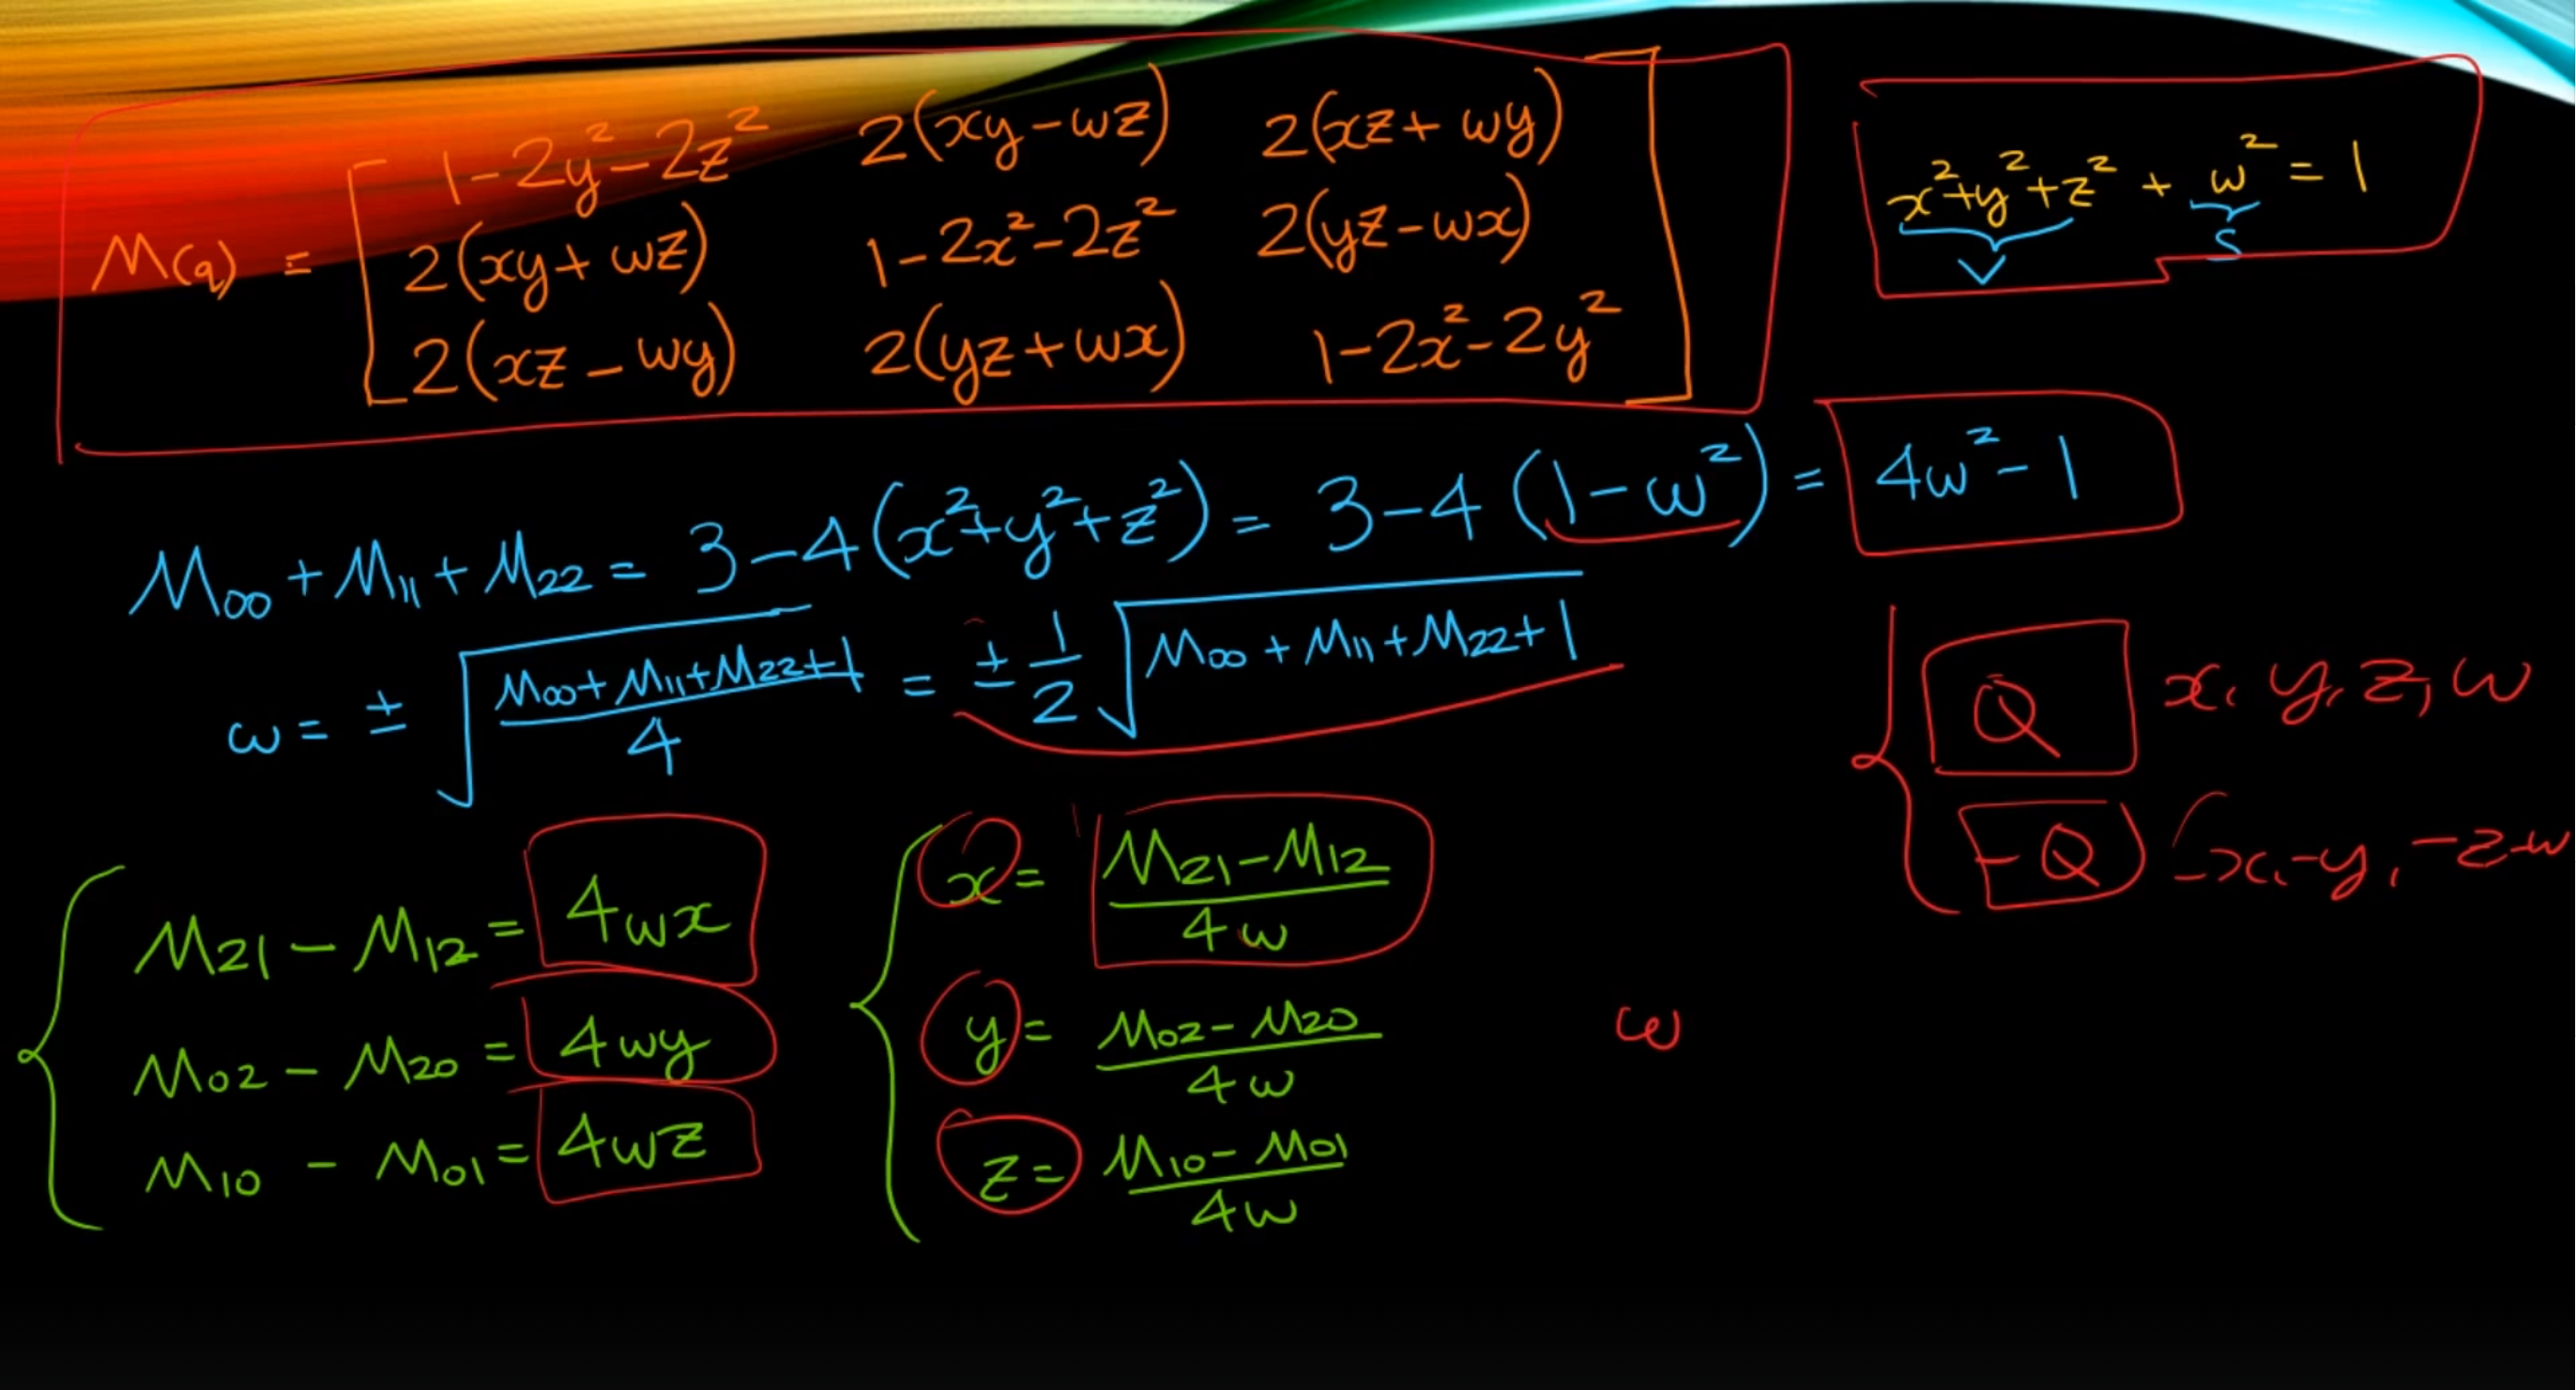 M(q) = [ 1-2y²-2z² 2(xy-wz) 2(xz+wy)
2(xy+wz) 1-2x²-2z² 2(yz-wx)
2(xz-wy) 2(yz+wx) 1-2x²-2y² ]
x²+y²+z² + w² = 1
V S
M00 + M11 + M22 = 3-4(x²+y²+z²) = 3-4(1-w²) = 4w²-1
w = ± √((M00+M11+M22+1)/4) = ± 1/2 √(M00+M11+M22+1)
Q x, y, z, w
-Q -x, -y, -z -w
M21 - M12 = 4wx
M02 - M20 = 4wy
M10 - M01 = 4wz
x = (M21-M12)/4w
y = (M02-M20)/4w
z = (M10-M01)/4w
w